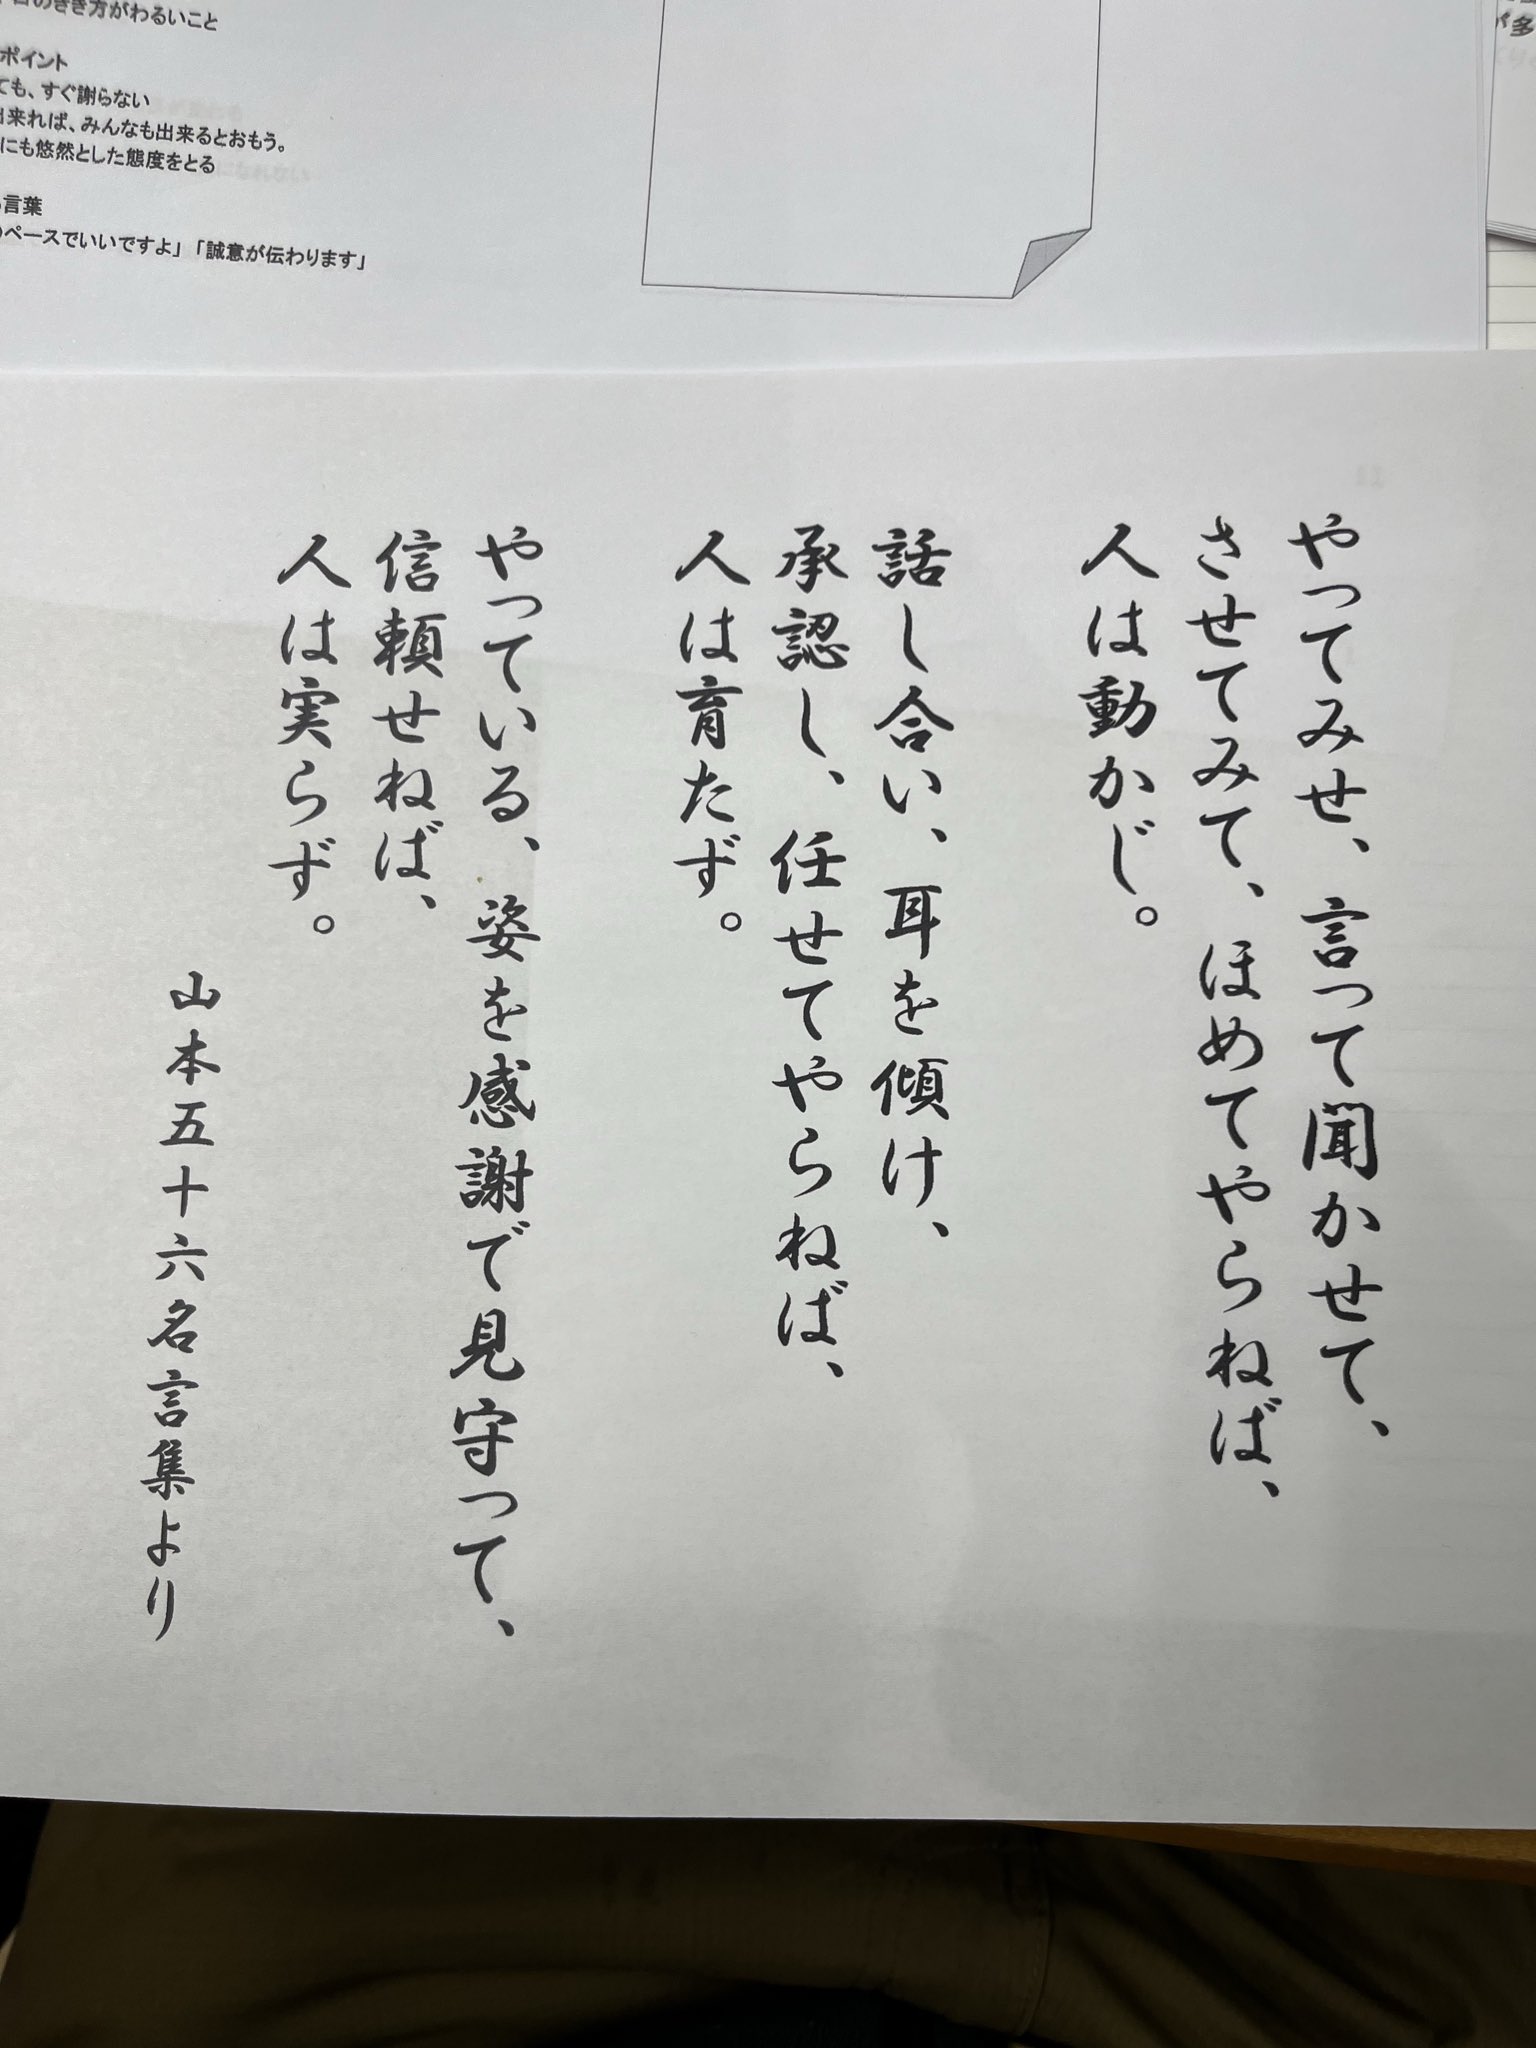 のきき方がわるいこと
ポイント
ても、すぐ謝らない
出来れば、みんなも出来るとおもう。
にも悠然とした態度をとる
言葉
のペースでいいですよ」「誠意が伝わります」
が多
やってみせ、言って聞かせて、
させてみて、ほめてやらねば、
人は動かじ。
話し合い、耳を傾け、
承認し、任せてやらねば、
人は育たず。
やっている、姿を感謝で見守って、
信頼せねば、
人は実らず。
山本五十六名言集より